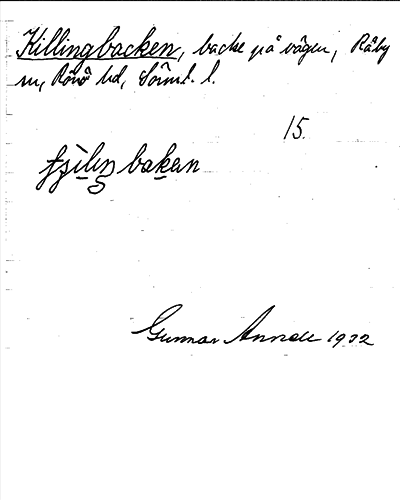 Killingbacken, backe på vägen, Råby
sn, Rönö hd, Sörml. l.
15.
bakan
Gunnar 1932